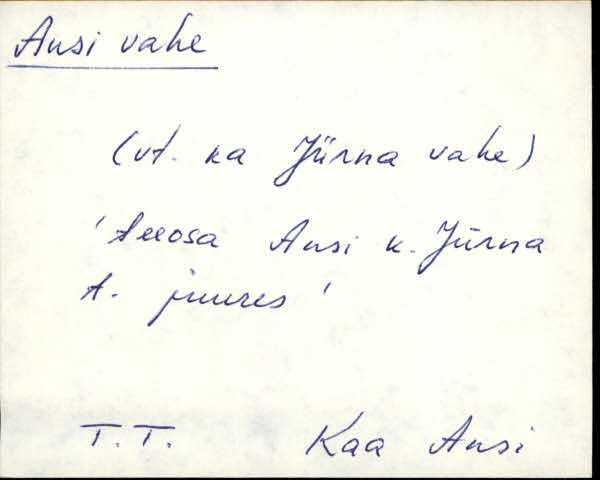 Ansi vahe
(vt. ka Jürna vahe)
'teeosa Ansi k. Jürna
t. juures'
T. T. Kaa Ansi